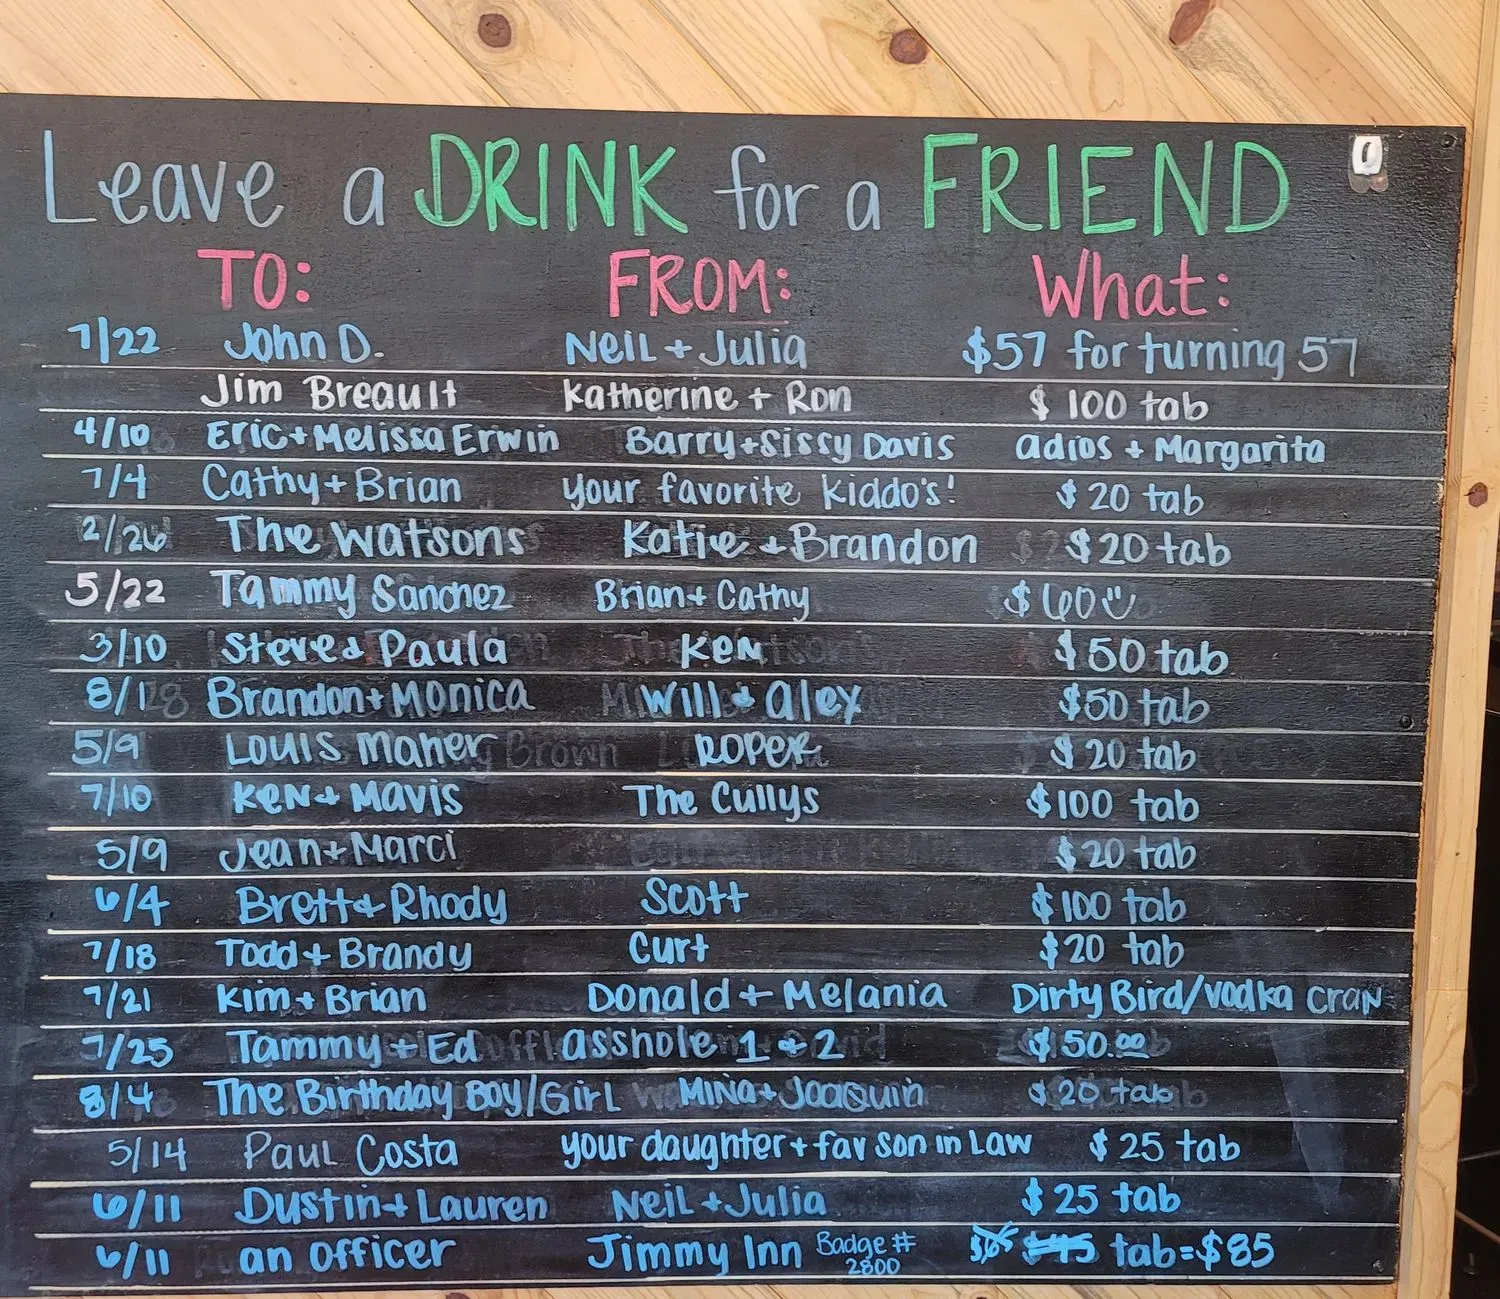 Leave a DRINK for a FRIEND
TO: FROM: What:
7/22 John D. Neil + Julia $57 for turning 57
Jim Breault Katherine + Ron $100 tab
4/10 Eric + Melissa Erwin Barry + Sissy Davis adios + Margarita
7/4 Cathy + Brian your favorite kiddo's! $20 tab
2/26 The Watsons Katie + Brandon $20 tab
5/22 Tammy Sanchez Brian + Cathy $60
3/10 Steve & Paula Ken $50 tab
8/18 Brandon + Monica Will & Alex $50 tab
5/9 Louis Maher Roper $20 tab
7/10 Ken & Mavis The Cullys $100 tab
5/9 Jean + Marci $20 tab
6/4 Brett & Rhody Scott $100 tab
7/18 Todd + Brandy Curt $20 tab
7/21 Kim + Brian Donald + Melania Dirty Bird/vodka cran
7/25 Tammy + Ed asshole 1 & 2 $50.00
8/4 The Birthday Boy/Girl Mina + Joaquin $20 tab
5/14 Paul Costa your daughter + fav son in law $25 tab
6/11 Dustin + Lauren Neil + Julia $25 tab
6/11 an officer Jimmy Inn Badge # 2800 $65 $45 tab = $85